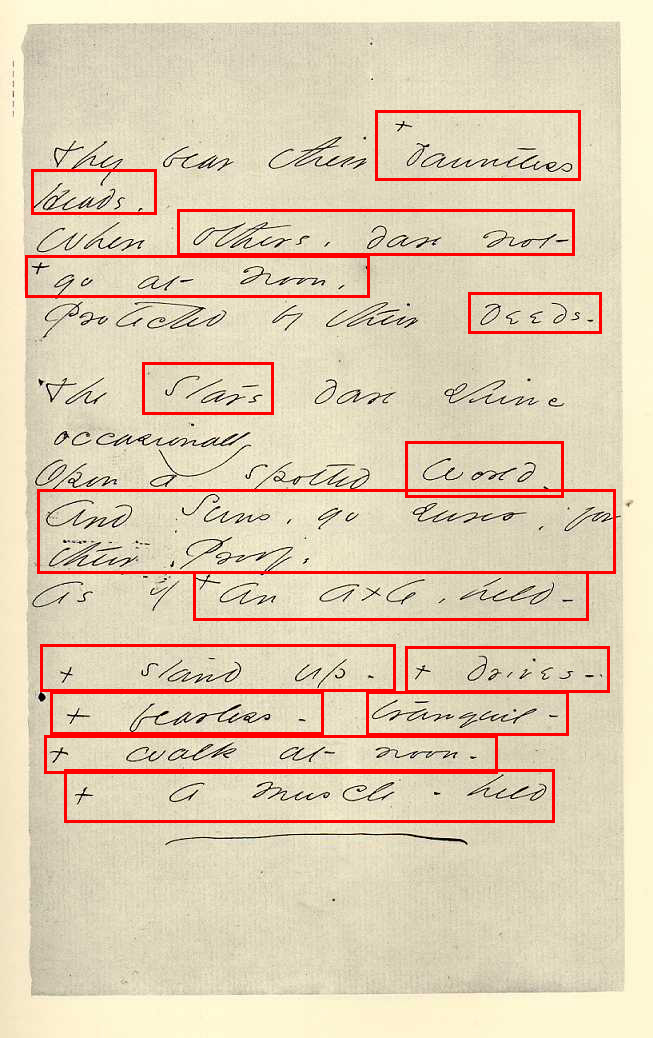 They bear their + Dauntless
Heads.
When others, dare not -
+ go at noon,
Protected by their deeds -
The Stars dare shine
occasionally
Upon a spotted World -
And Suns, go surer, for
their Proof,
As if + an axle, held -
+ stand up - + drives -
+ fearless - tranquil -
+ walk at noon -
+ a muscle - held